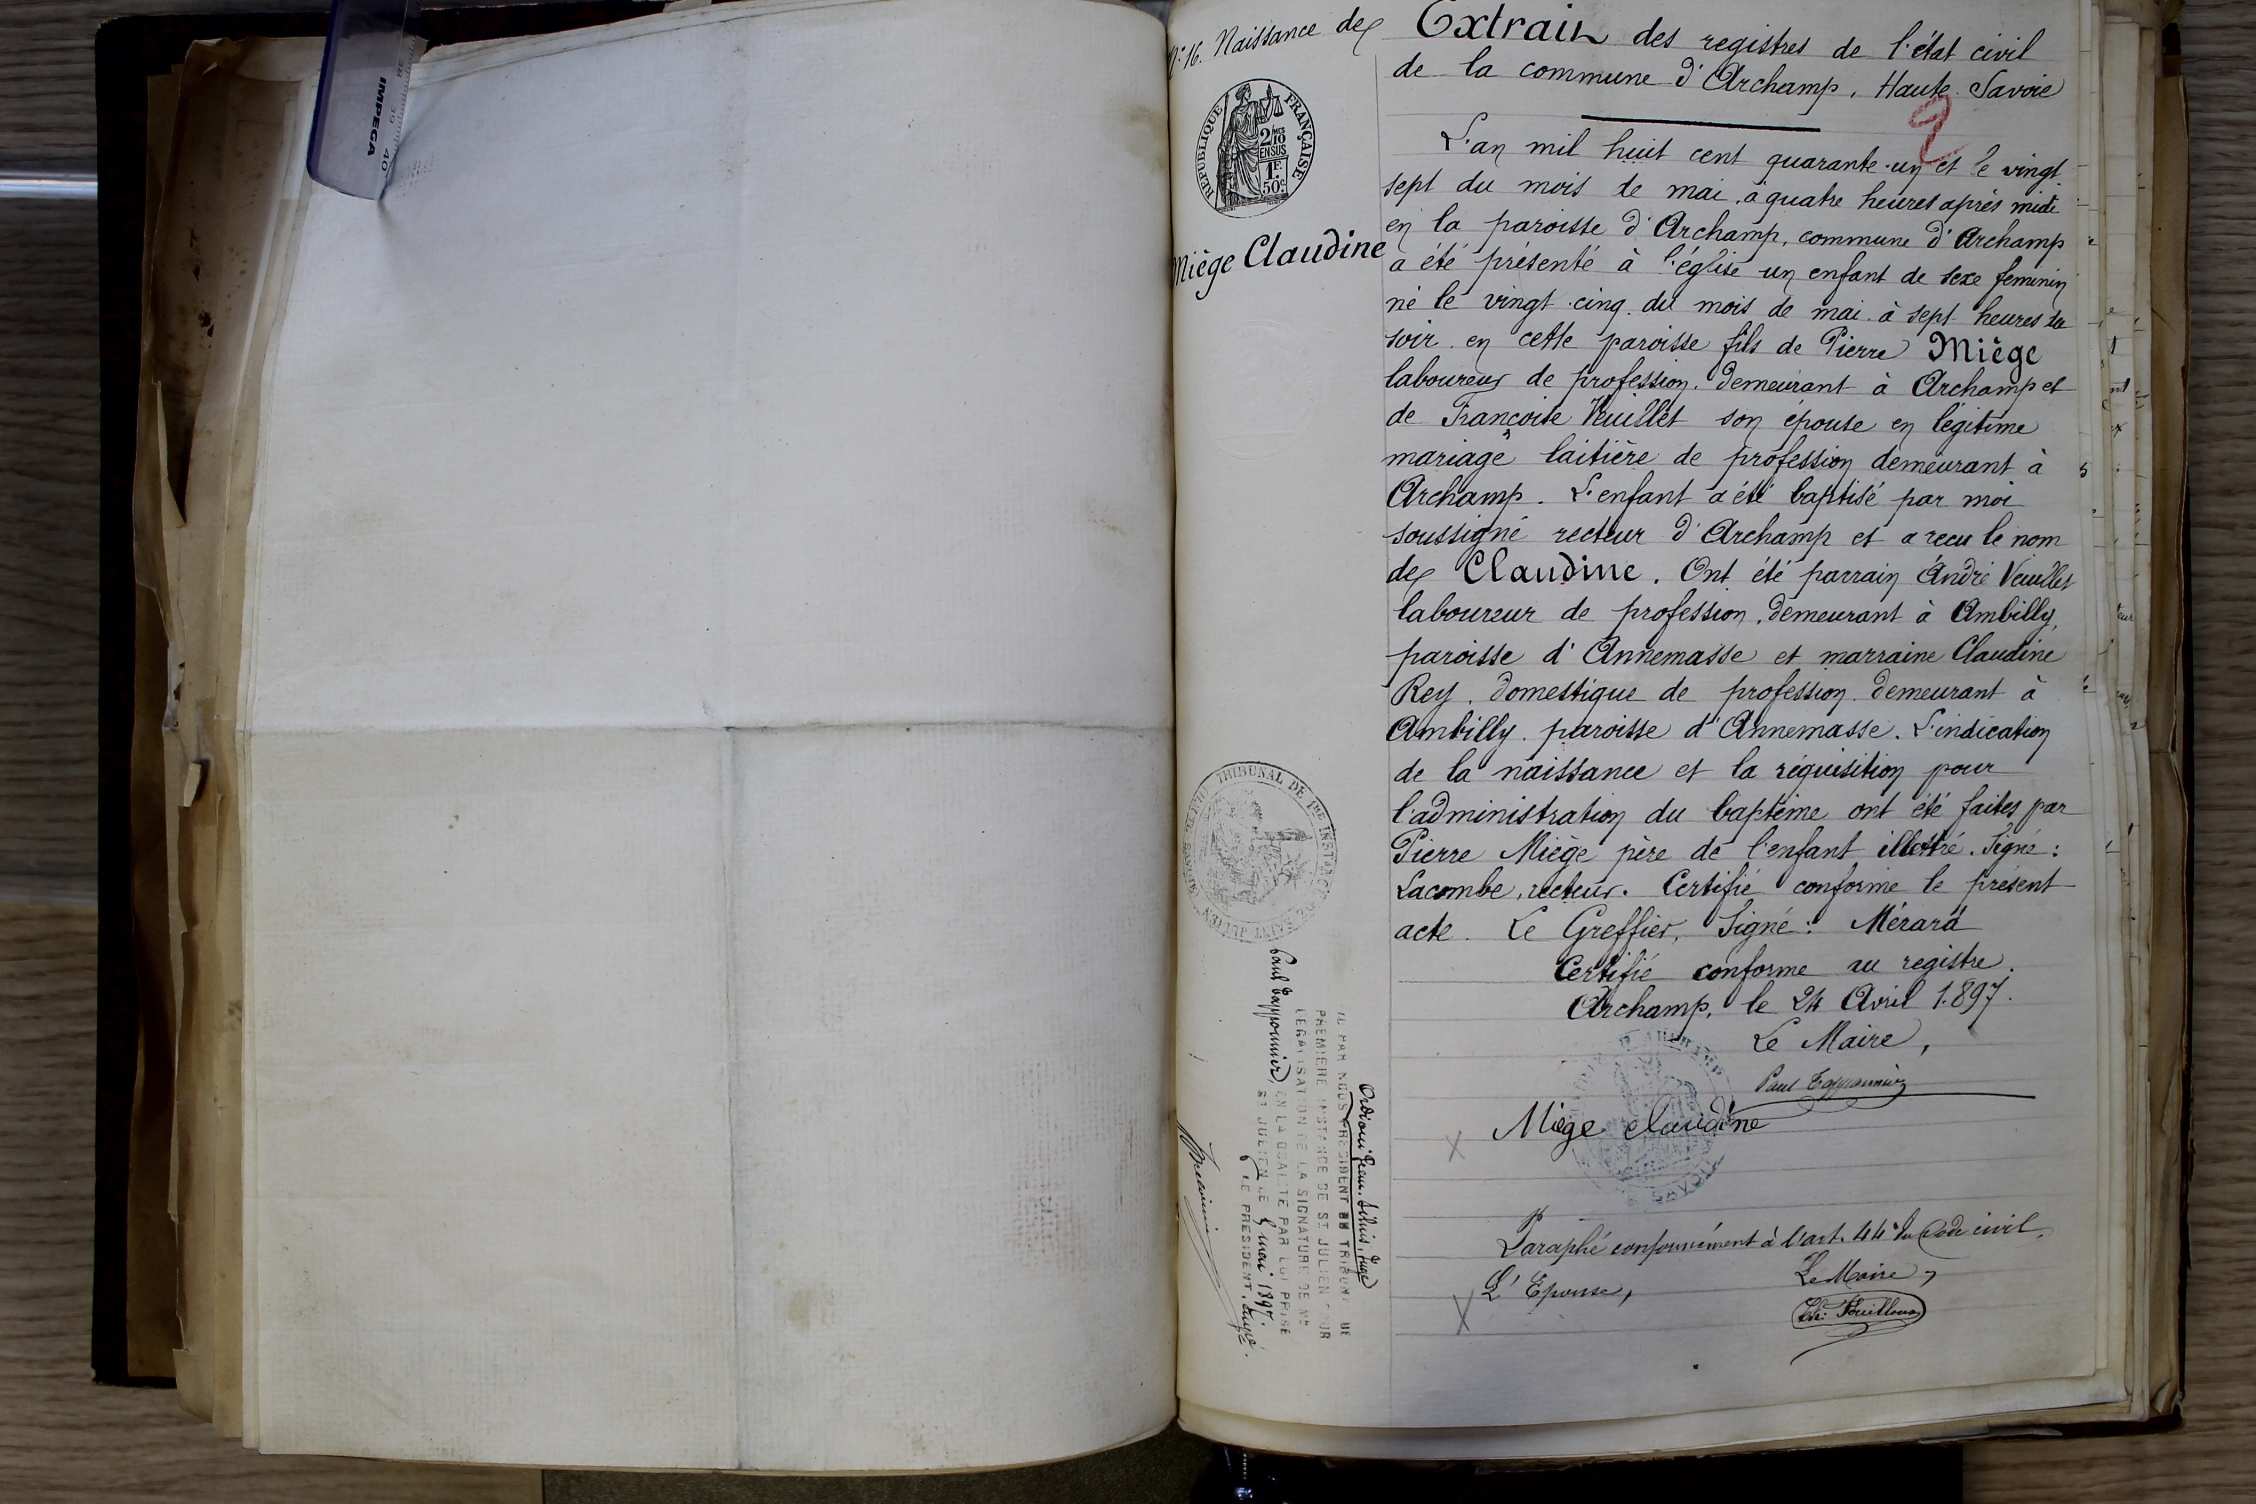 N° 16. Naissance de
REPUBLIQUE FRANÇAISE
2/10
EN SUS
1F.
50c
Miège Claudine
Extrait des registres de l'état civil
de la commune d'Archamp, Haute Savoie
2
L'an mil huit cent quarante-un et le vingt-
sept du mois de mai, à quatre heures après midi
en la paroisse d'Archamp, commune d'Archamp
a été présenté à l'église un enfant de sexe feminin
né le vingt-cinq du mois de mai à sept heures du
soir en cette paroisse fils de Pierre Miège
laboureur de profession, demeurant à Archamp et
de Françoise Veuillet son épouse en légitime
mariage laitière de profession demeurant à
Archamp. L'enfant a été baptisé par moi
soussigné recteur d'Archamp et a recu le nom
de Claudine. Ont été parrain André Veuillet
laboureur de profession, demeurant à Ambilly,
paroisse d'Annemasse et marraine Claudine
Rey, domestique de profession demeurant à
Ambilly paroisse d'Annemasse. L'indication
de la naissance et la réquisition pour
l'administration du baptême ont été faites par
Pierre Miège père de l'enfant illettré. Signé:
Lacombe, recteur. Certifié conforme le présent
acte. Le Greffier, Signé: Mérard
Certifié conforme au registre.
Archamp, le 24 Avril 1897.
Le Maire,
Paul Tapponnier
Miège claudine
Paraphé conformément à l'art. 44 du Code civil,
L'Epouse,
Le Maire,
TRIBUNAL DE 1RE INSTANCE
DE SAINT JULIEN
PAR NOUS PRESIDENT DU TRIBUNAL DE
PREMIERE INSTANCE DE ST JULIEN POUR
LEGALISATION DE LA SIGNATURE DE MR
Paul Tapponnier, EN LA QUALITE PAR LUI PRISE
ST JULIEN LE 4 mai 1897.
LE PRESIDENT, empé.
IMPEGA
38 39 40